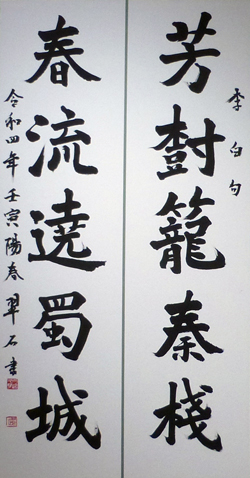 李白句
芳樹籠秦棧
春流遶蜀城
令和四年壬寅陽春翠石書